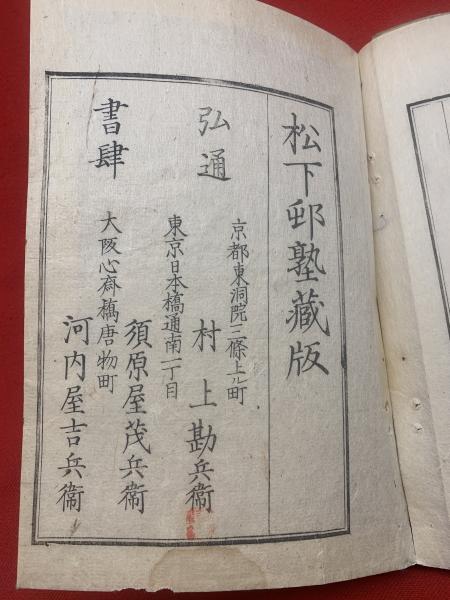 松下邨塾藏版
弘通
書肆
京都東洞院三條上ル町
村上勘兵衞
東京日本橋通南一丁目
須原屋茂兵衞
大阪心齋橋唐物町
河内屋吉兵衞